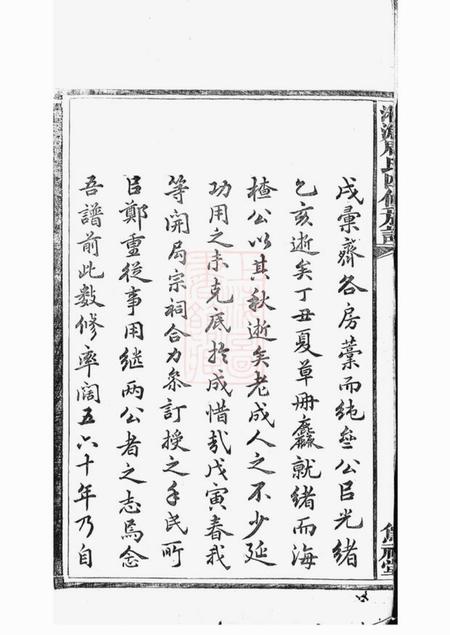 戌彙齊各房藁而純垒公臣光緒
乙亥逝矣丁丑夏草冊麤就緒而海
楂公以其秋逝矣老成人之不少延
功用之未克底於成惜哉戊寅春我
等開局宗祠合力叅訂授之手民所
臣鄭重從事用继两公者之志焉念
吾譜前此數修率阔五六十年乃自
氏四修族譜
堂